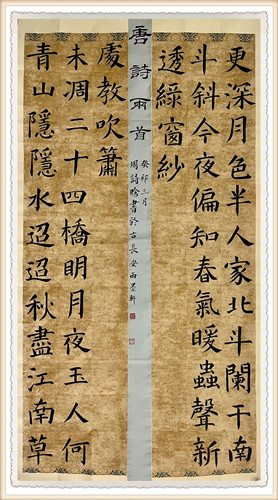 唐詩兩首
更深月色半人家北斗闌干南
斗斜今夜偏知春氣暖蟲聲新
透綠窗紗
青山隱隱水迢迢秋盡江南草
未凋二十四橋明月夜玉人何
處教吹簫
癸卯三月
周詩書於古長安雨墨軒